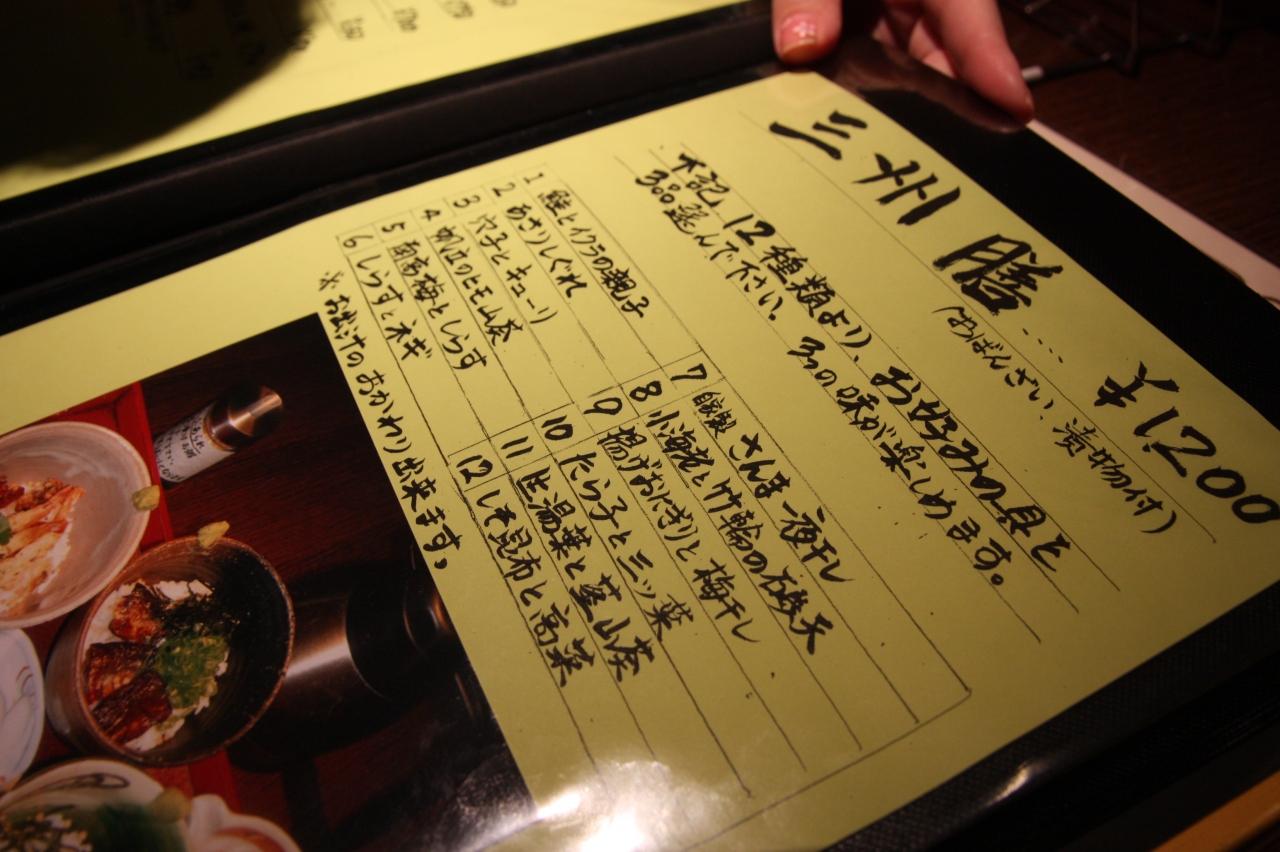 三州膳… ¥1200
(おばんざい、漬物付)
下記12種類より、お好みの具と
3品選んで下さい。 3つの味が楽しめます。
1 鮭とイクラの親子
2 あさりしぐれ
3 穴子とキューリ
4 帆立のヒモ山葵
5 南高梅としらす
6 しらすとネギ
7 自家製 さんま一夜干し
8 小海老と竹輪の石磯天
9 揚げおにぎりと梅干し
10 たら子と三ッ葉
11 生湯葉と茎山葵
12 しそ昆布と高菜
※お出汁のおかわり出来ます。